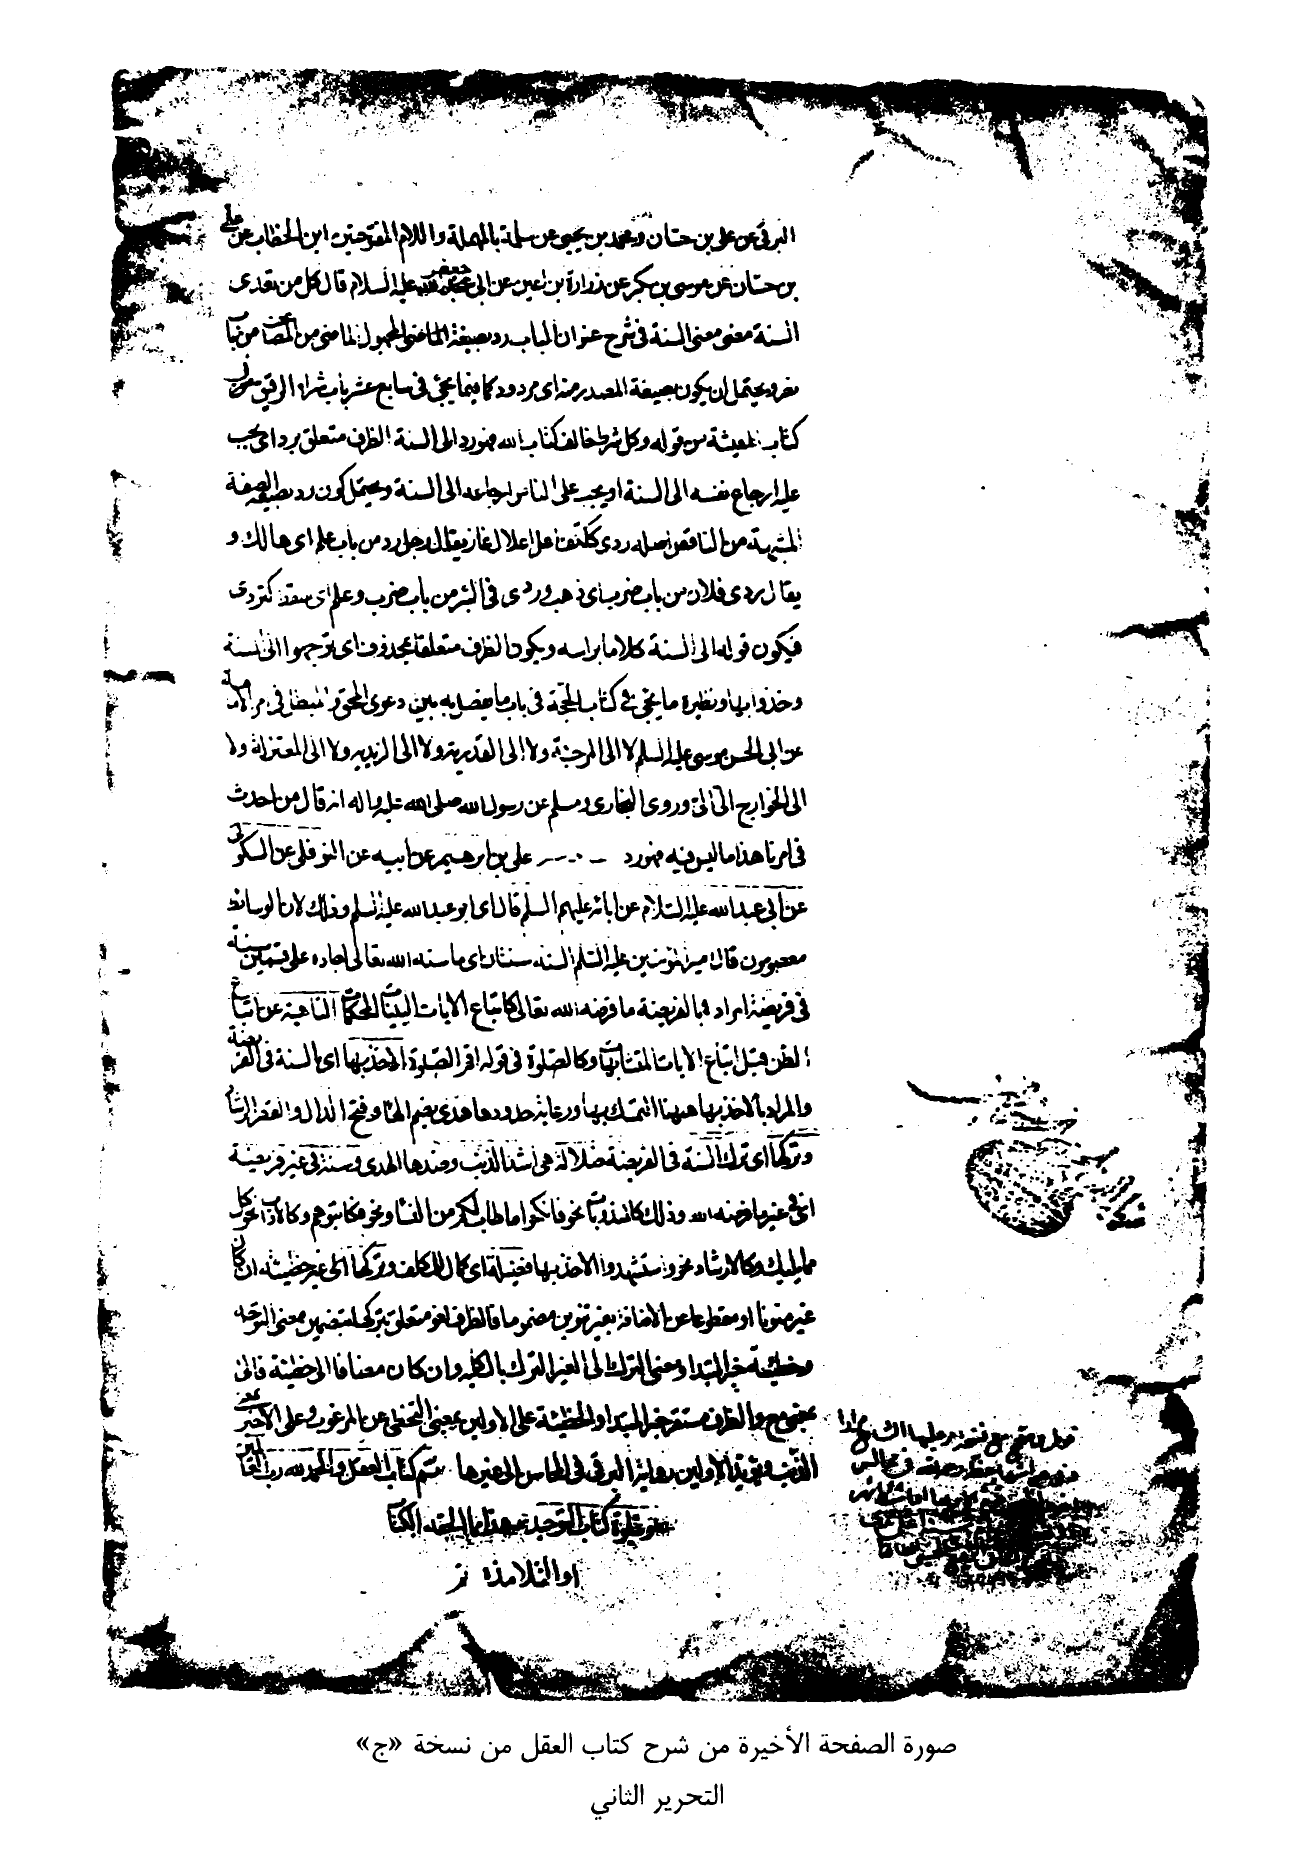 البرقى عن على بن حسّان ومحمد بن يحيى عن سلمة بالمهملة واللام المفتوحتين ابن الخطاب عن على
بن حسّان عن موسى بن بكر عن زرارة بن اعين عن ابى جعفر عليه السلام قال كل من تعدى
السنة معنى معنى السنة فى شرح عنوان الباب رد بصيغة الماضى المجهول الماضى من المضاعف من باب
نصر ويحتمل ان يكون بصيغة المصدر منه اى مردود كما فيما يجئ فى سابع عشر باب شراء الرقيق من
كتاب المعيشة من قوله وكل شرط خالف كتاب الله فهو رد الى السنة الظرف متعلق برد اى يجب
عليه ارجاع نفسه الى السنة او يجب على الناس ارجاعه الى السنة ويحتمل كون رد بصيغة الصفة
المشبهة من الناقص اصله ردى ككتف اعل اعلال غاز يقال رجل رد من باب علم اى هالك و
يقال ردى فلان من باب ضرب اى ذهب وردى فى البئر من باب ضرب وعلم اى سقط كتردى
فيكون قوله الى السنة كلاما برأسه ويكون الظرف متعلقا بمحذوف اى توجهوا الى السنة
وخذوا بها ونظيره ما يجئ فى كتاب الحجّة فى باب ما يفصل به بين دعوى المحق والمبطل فى امر الامامة
عن ابى الحسن موسى عليه السلم لا الى المرجئة ولا الى القدرية ولا الى الزيدية ولا الى المعتزلة ولا
الى الخوارج الىّ الىّ وروى البخارى ومسلم عن رسول الله صلى الله عليه واله انه قال من احدث
فى امرنا هذا ما ليس فيه فهو رد على بن ابرهيم عن ابيه عن النوفلى عن السكونى
عن ابى عبدالله عليه السلام عن ابائه عليهم السلم قال اى ابو عبدالله عليه السلم وذلك لان الوسائط
معصومون قال امير المؤمنين عليه السلم السنة سنتان اى ما سنه الله تعالى لعباده على قسمين سنة
فى فريضة المراد بالفريضة ما فرضه الله تعالى كاتباع الايات البينات المحكمات الناهية عن اتباع
الظن قبل اتباع الايات المتشابهات وكالصلوة فى قوله اقم الصلوة الاخذ بها اى بالسنة فى الفريضة
والمراد بالاخذ بها ههنا التمسك بها ورعاية حدودها هدى بضم الهاء وفتح الدال والقصر الرشاد
وتركها اى ترك السنة فى الفريضة ضلالة هى اشد الذنب وضدها الهدى وسنة فى غير فريضة
اى فى غير ما فرضه الله وذلك كالمندوبات نحو فانكحوا ما طاب لكم من النساء ونحو فكاتبوهم وكالاداب نحو كل
مما يليك وكالارشاد نحو واستشهدوا الاخذ بها فضيلة اى كمال للمكلف وتركها الى غير خطيئة ان كان
غير منونا او مقطوعا عن الاضافة بغير تنوين مضموما فالظرف لغو متعلق بتركها بتضمين معنى التوجه
وخطيئة خبر المبتدا ومعنى الترك الى الغير الترك بالكليه وان كان مضافا الى خطيئة فالى
بمعنى مع والظرف مستقر خبر المبتدا والخطيئة على الاولين بمعنى التخطى عن المرغوب وعلى الاخير بمعنى
الذنب ويؤيد الاولين رواية البرقى فى المحاسن الى غيرها تم كتاب العقل والحمد لله رب العالمين
ويتلوه كتاب التوحيد
او التلامذة
صورة الصفحة الأخيرة من شرح كتاب العقل من نسخة «ج»
التحرير الثاني